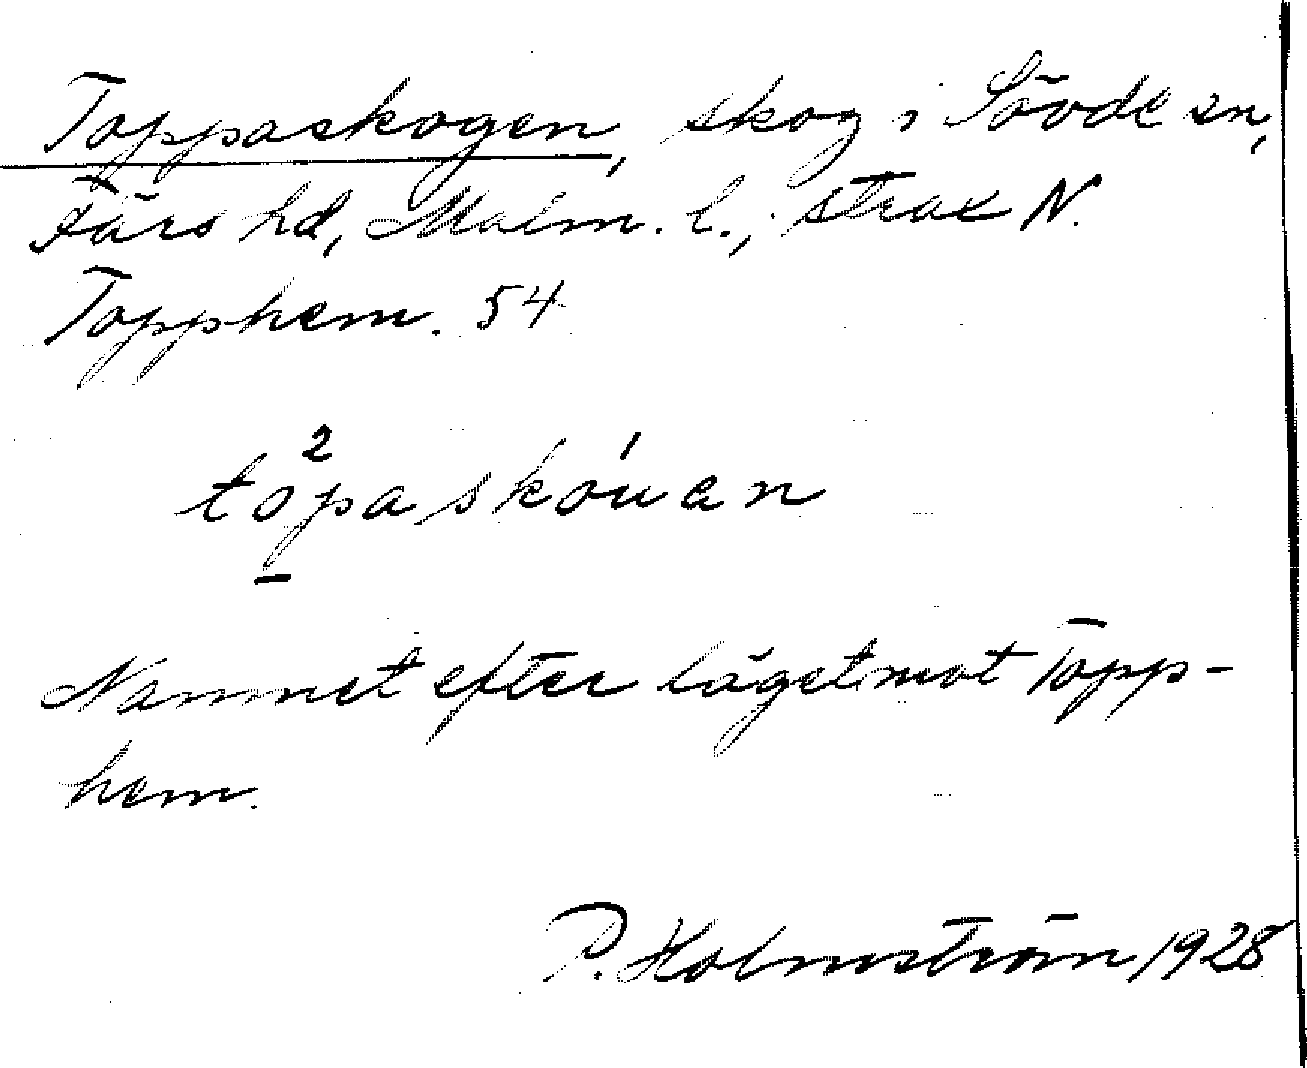 Toppaskogen, skog i Sövde sn,
Färs hd, Malm. l., strax N.
Topphem. 54
tòpaskóuan
Namnet efter läget mot Topp-
hem.
P. Holmström 1928